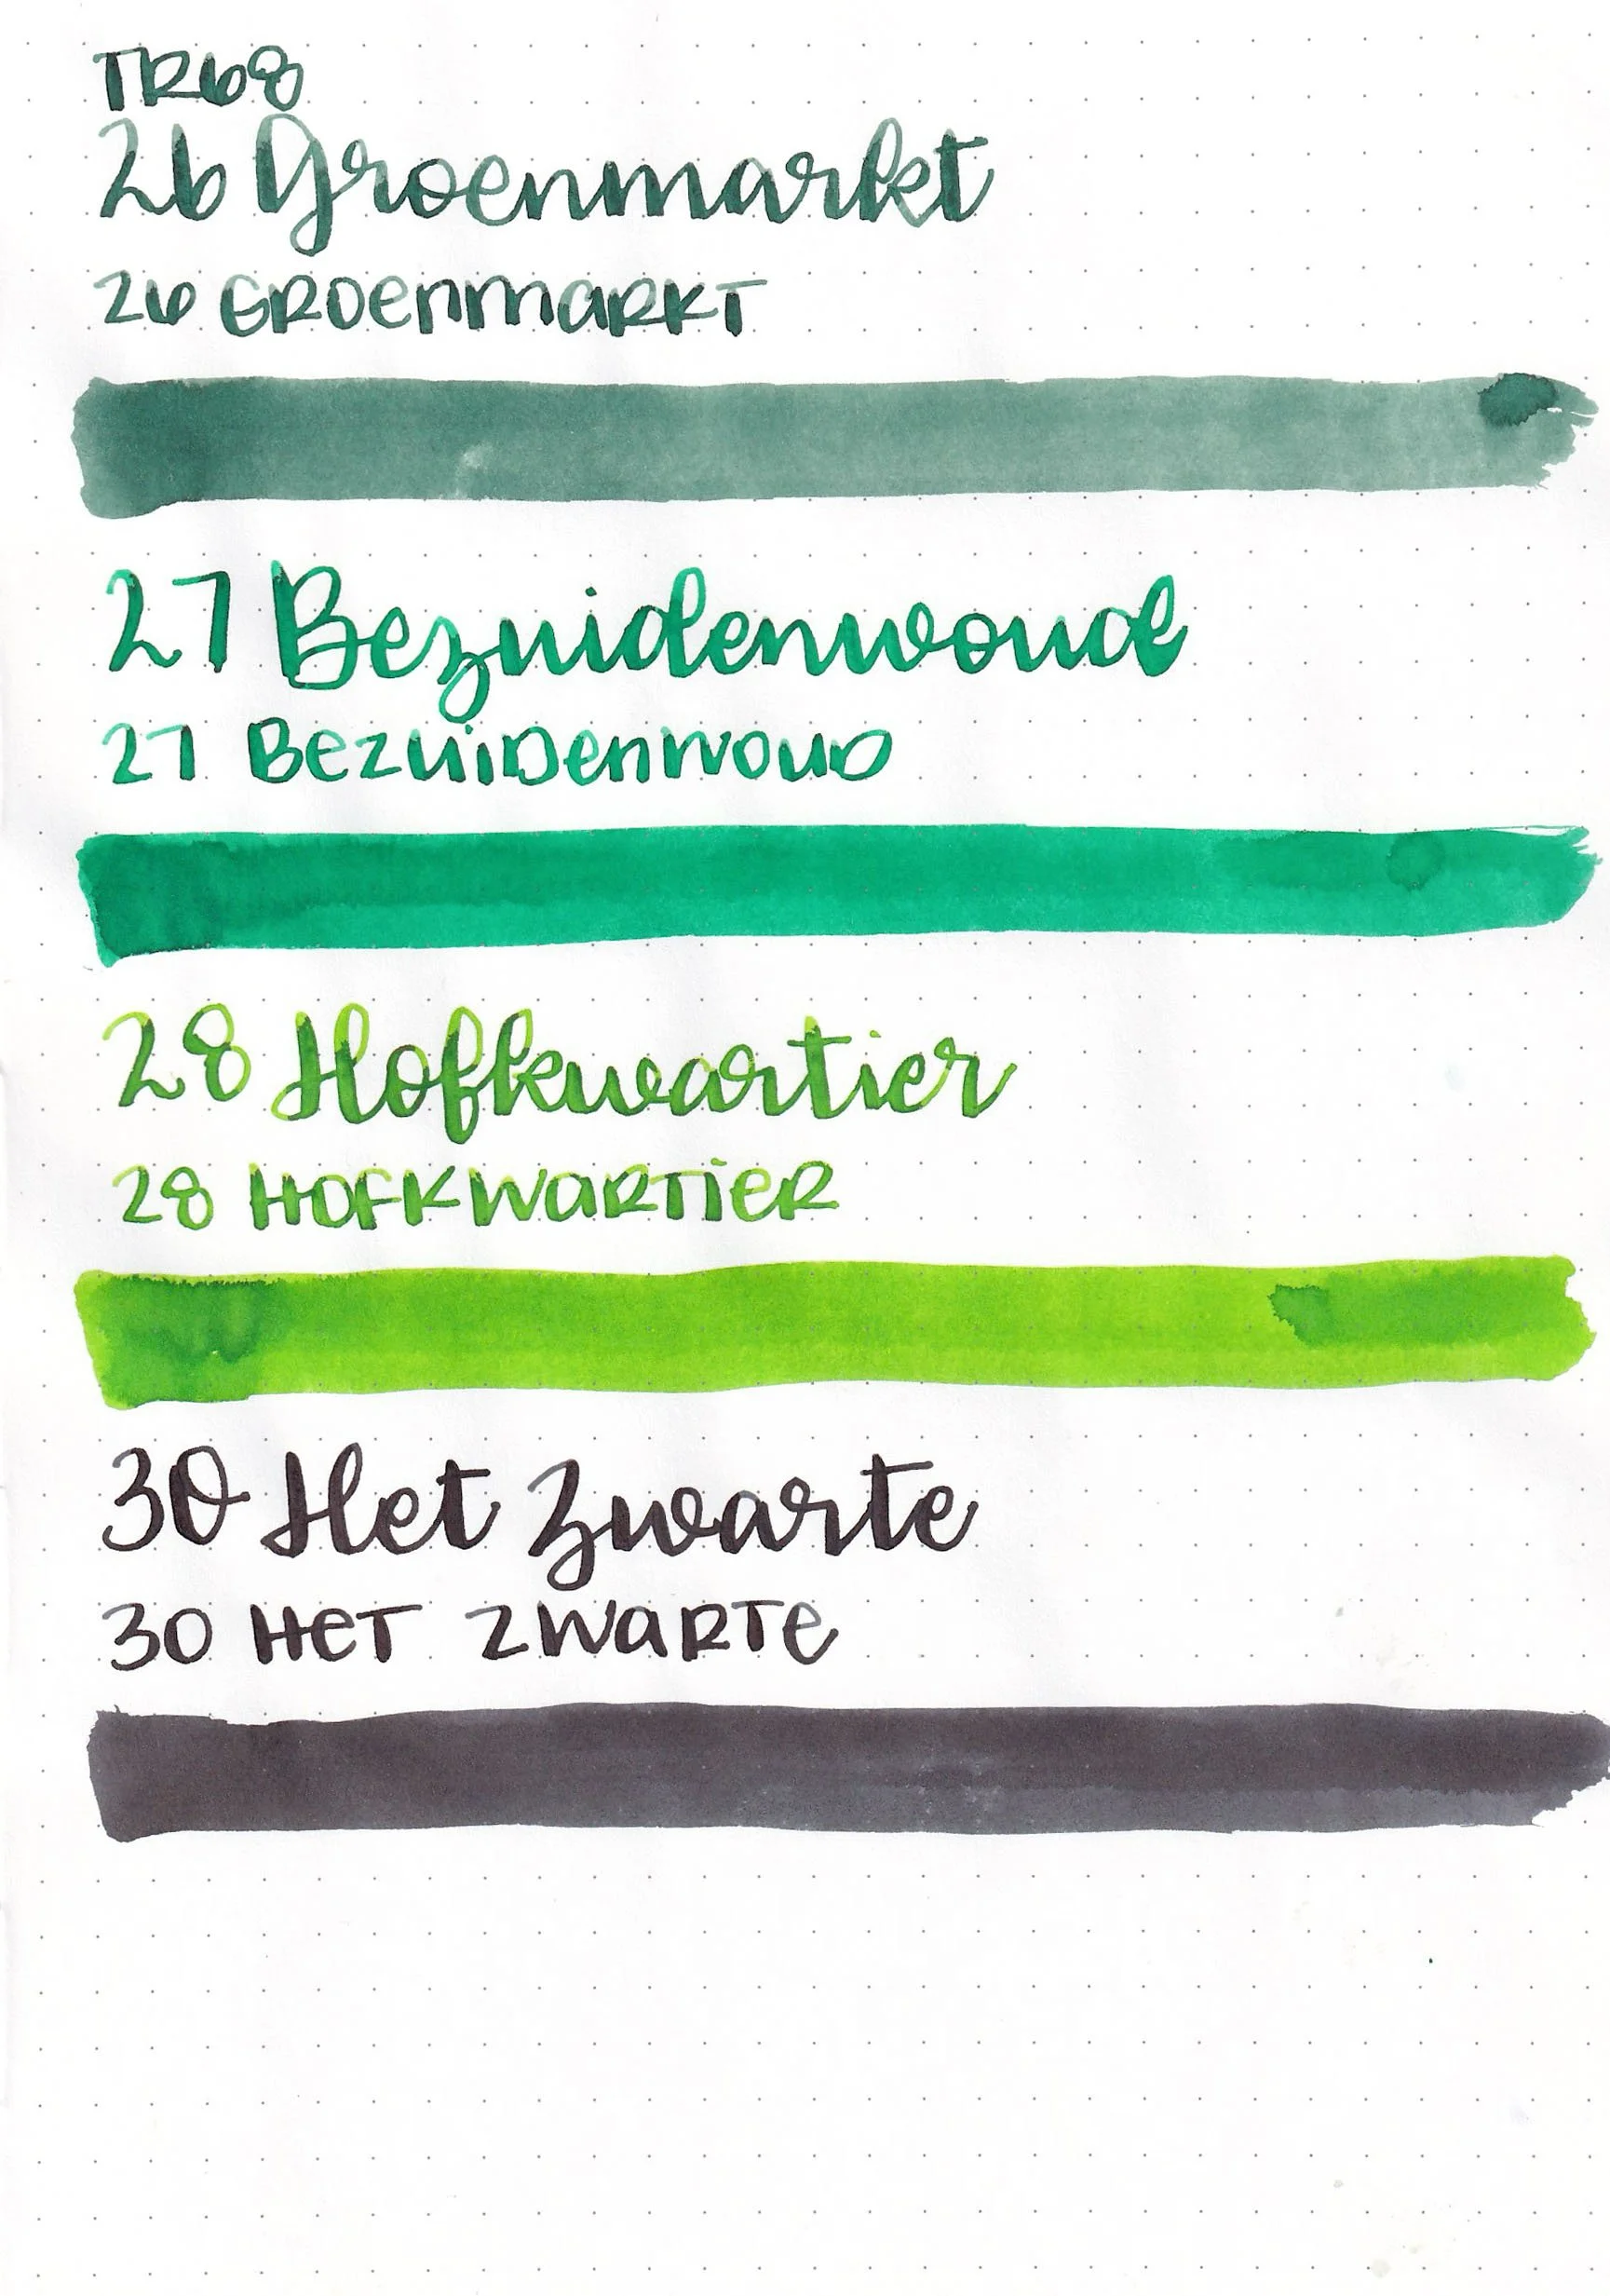 TR68
26 Groenmarkt
26 GROenmaRKT
27 Bezuidenwoud
27 BezuiDenwouD
28 Hofkwartier
28 HOFKWaRTieR
30 Het Zwarte
30 HeT ZWaRTe